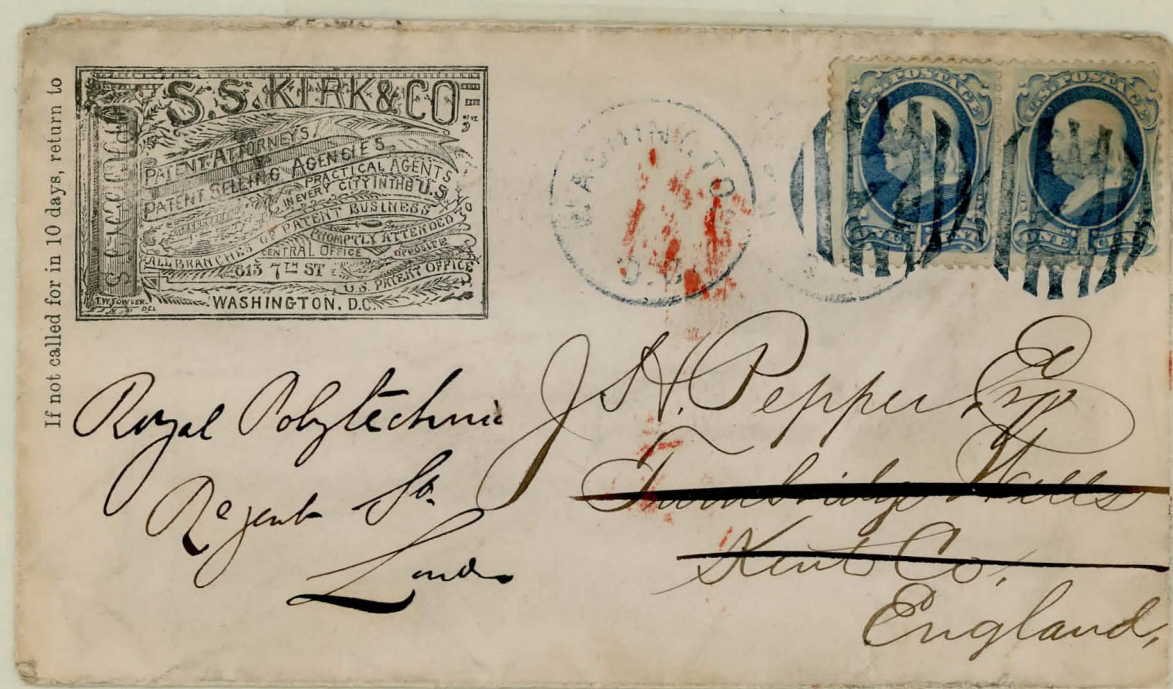 If not called for in 10 days, return to
S. S. KIRK & CO.
PATENT ATTORNEYS
PATENT SELLING AGENCIES.
PRACTICAL AGENTS
IN EVERY CITY IN THE U.S.
ALL BRANCHES OF PATENT BUSINESS
PROMPTLY ATTENDED
CENTRAL OFFICE
OPPOSITE
613 7TH ST
U.S. PATENT OFFICE
WASHINGTON, D.C.
T.W. FOWLER.
DEL
WASHINGTO
D.C.
U.S. POSTAGE
ONE CENT
U.S. POSTAGE
ONE CENT
J H. Pepper, Esq
Tunbridge Wells
Kent Co,
England,
Royal Polytechnic
Regent St.
London